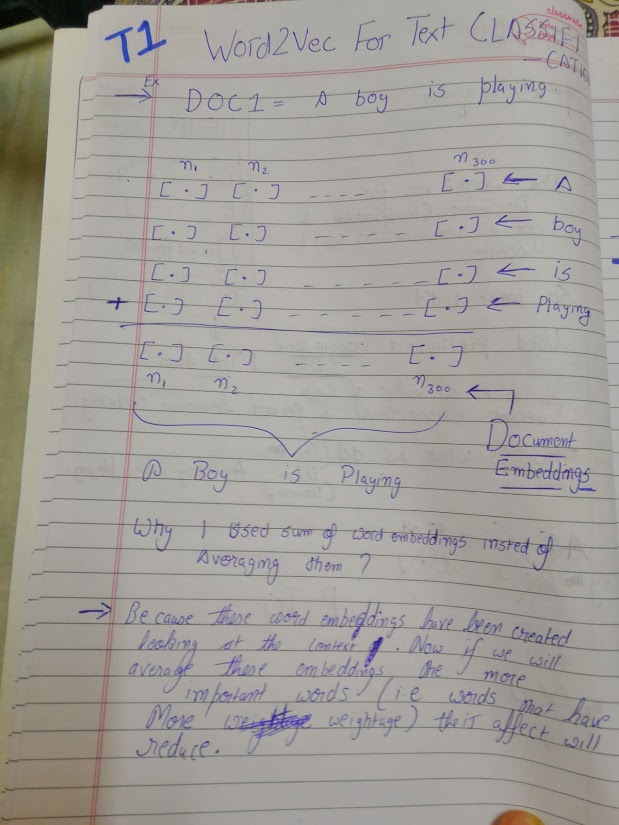 classmate
T1 Word2Vec For Text CLASSIFI
- CATION
Ex
→ DOC1 = A boy is playing.
n1 n2 n300
[·] [·] ---- [·] ← A
[·] [·] ----- [·] ← boy
[·] [·] ------ [·] ← is
+ [·] [·] ------ [·] ← Playing
[·] [·] ---- [·]
n1 n2 n300 ←
Document
Embeddings
A Boy is Playing
Why I used sum of word embeddings insted of
Averaging them ?
→ Because these word embeddings have been created
looking at the context. Now if we will
average these embeddings the more
important words (i.e words that have
More weightage) their affect will
reduce.